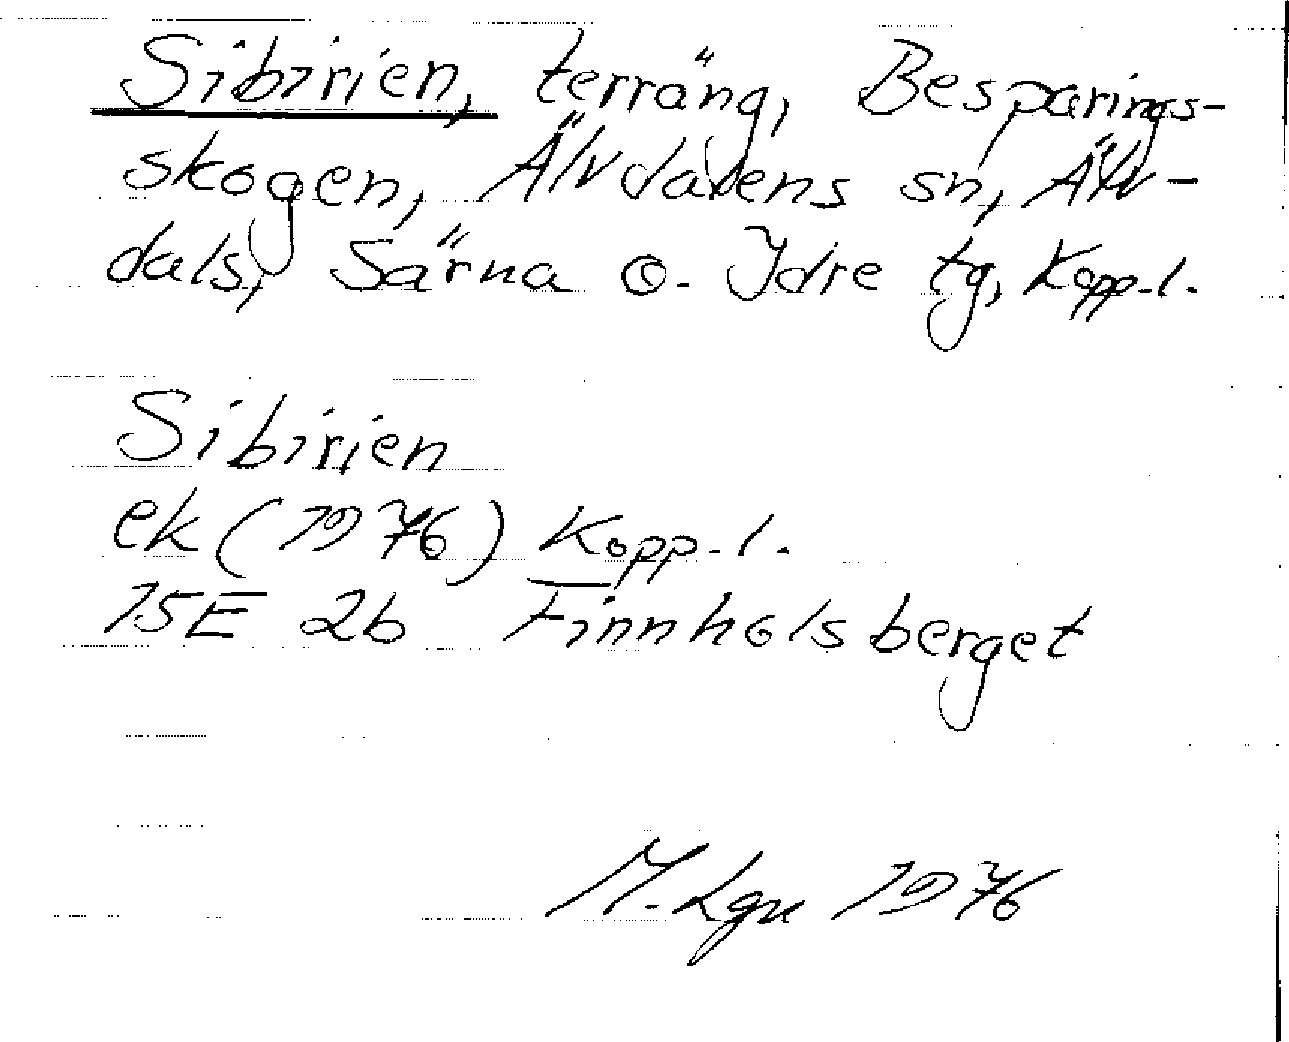 Sibirien, terräng, Besparings-
skogen, Älvdalens sn, Älv-
dals, Särna o. Idre tg, Kopp.l.
Sibirien
ek (1976) Kopp.l.
15E 2b Finnholsberget
M. Lgn 1976